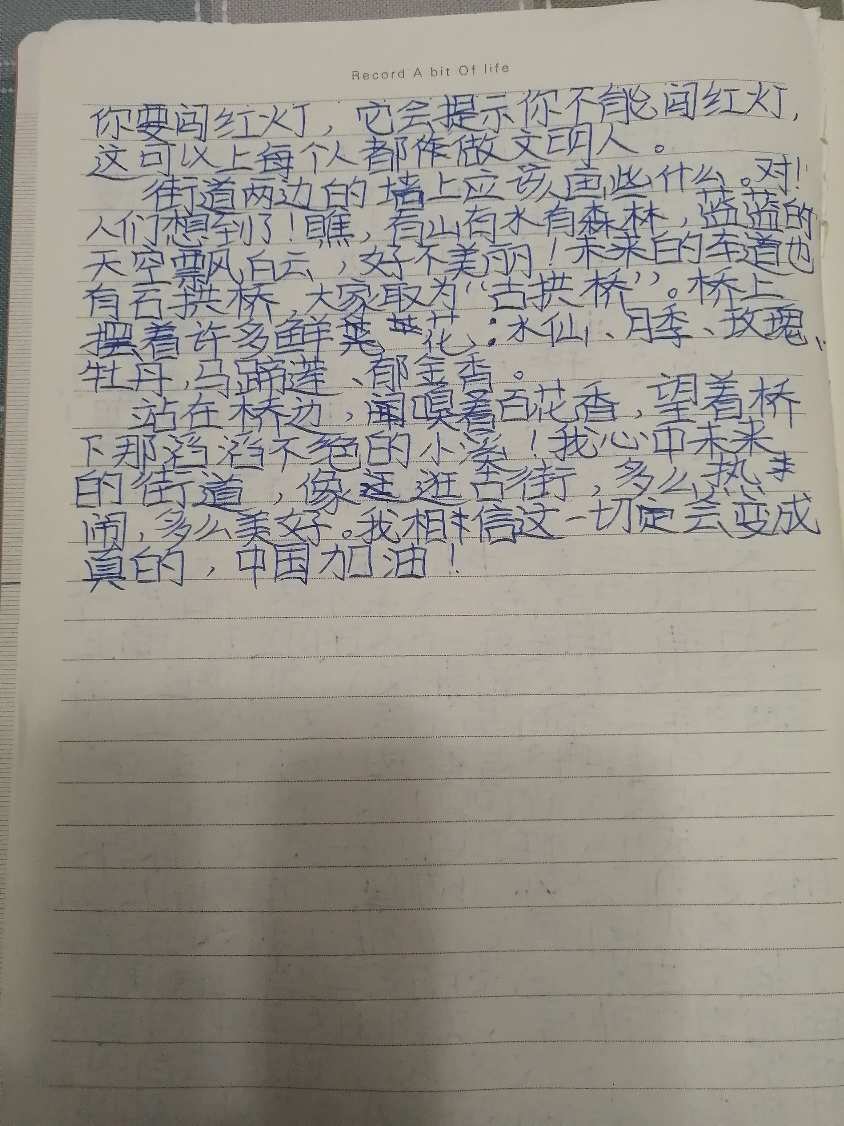 Record A bit Of life
你要闯红灯，它会提示你不能闯红灯，
这可以上每个人都作做文明人。
街道两边的墙上应该画些什么。对！
人们想到了！瞧，有山有水有森林，蓝蓝的
天空飘白云，好不美丽！未来的车道也
有石拱桥，大家取为“古拱桥”。桥上
摆着许多鲜花，：水仙、月季、玫瑰、
牡丹，马蹄莲、郁金香。
站在桥边，嗅着百花香，望着桥
下那滔滔不绝的小溪！我心中未来
的街道，像逛古街，多么热
闹，多么美好。我相信这一切定会变成
真的，中国加油！